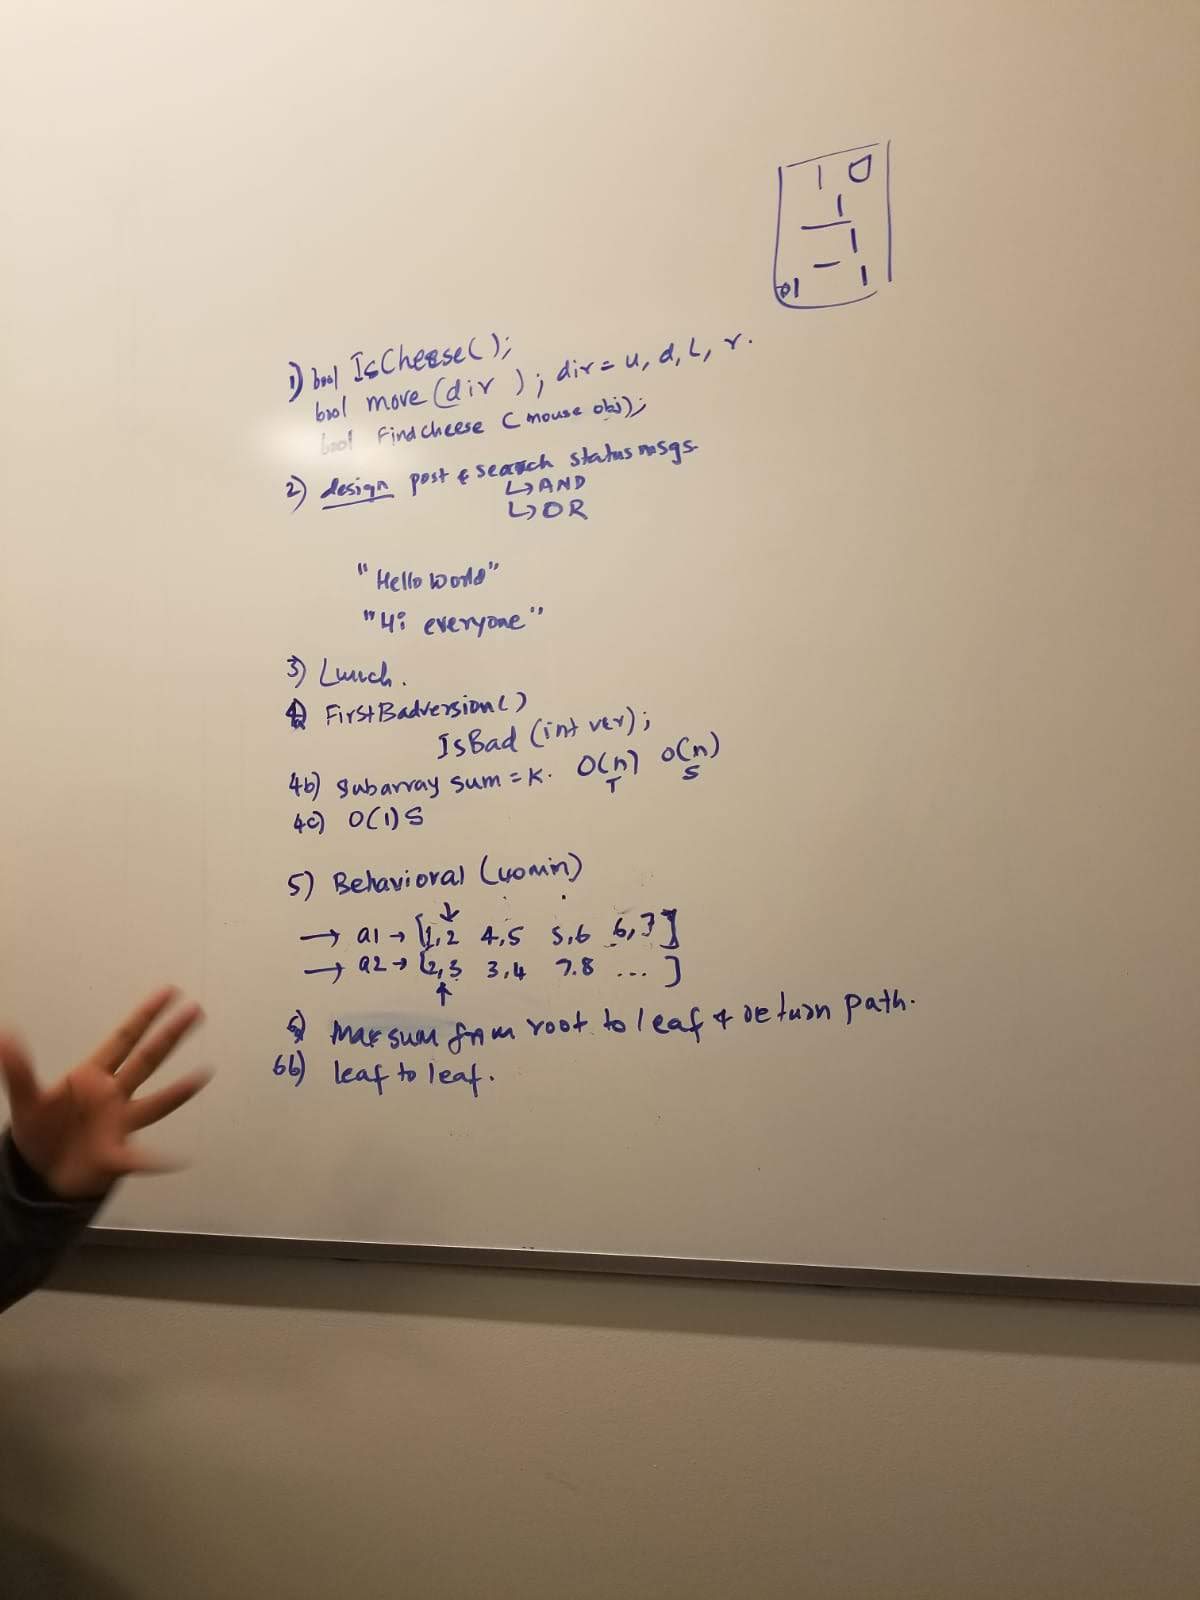 1) bool IsCheese();
bool move(dir); dir = u, d, L, r.
bool Findcheese (mouse obj);
2) design post & search status msgs.
↳ AND
↳ OR
"Hello world"
"Hi everyone"
3) Lunch.
FirstBadversion()
IsBad (int ver);
4b) subarray sum = K. O(n) O(n)
T S
4c) O(1) S
5) Behavioral (40min)
→ a1 → [1,2 4,5 5,6 6,7]
→ a2 → [2,3 3,4 7.8 ... ]
Max sum from root to leaf & return path.
6b) leaf to leaf.